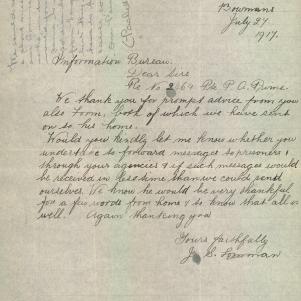 Bowmans
July 27
1917.
Information Bureau.
Dear Sirs
Re No 2 64 Pte P. A.
We thank you for prompt advice from you
also form, both of which we have sent
on to his home.
Would you kindly let me know whether you
undertake to forward messages to prisoners
through your agencies & if such messages would
be received in less time than we could send
ourselves. We know he would be very thankful
for a few words from home & to know that all is
well. Again thanking you
Yours faithfully
J. S.